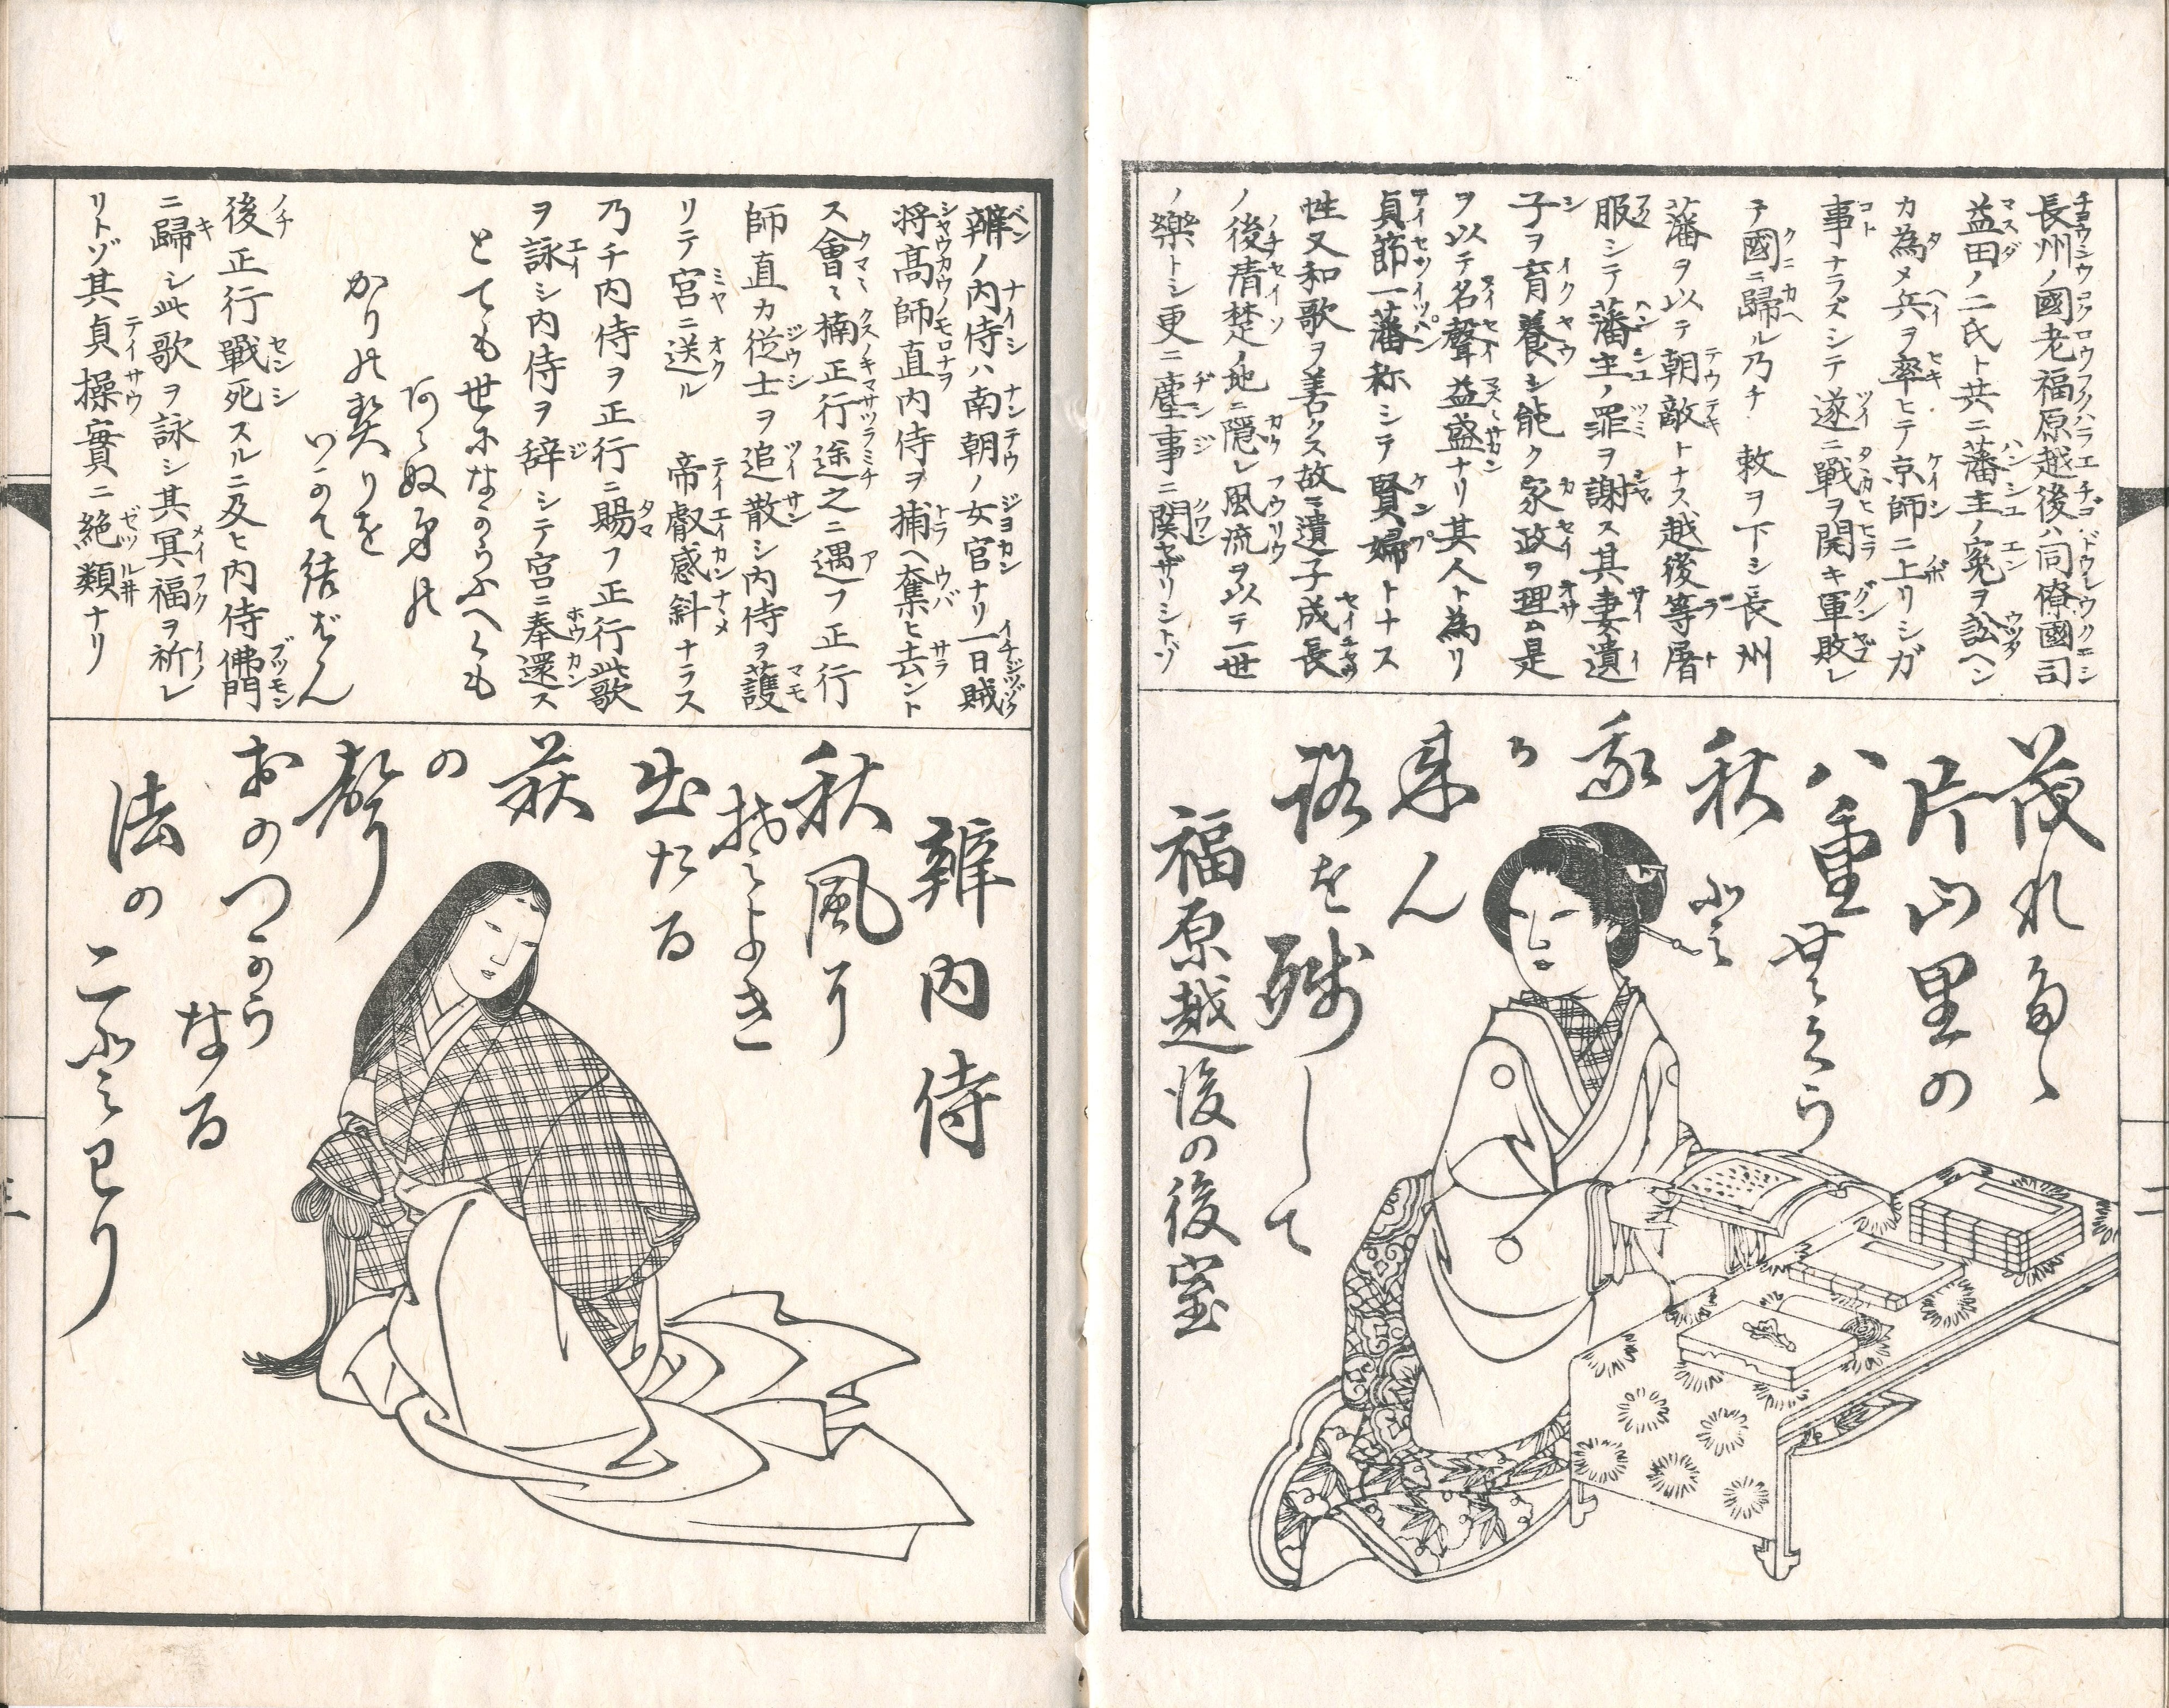 長州ノ國老福原越後ハ同僚國司
益田ノ二氏ト共ニ藩主ノ寃ヲ訟ヘン
カ為メ兵ヲ率ヒテ京師ニ上リシガ
事ナラズシテ遂ニ戰ヲ開キ軍敗レ
テ國ニ歸ル乃チ 敕ヲ下シ長州
藩ヲ以テ朝敵トナス越後等屠
服シテ藩主ノ罪ヲ謝ス其妻遺
子ヲ育養シ能ク家政ヲ理ム是
ヲ以テ名聲益盛ナリ其人ト為リ
貞節一藩称シテ賢婦トナス
性又和歌ヲ善クス故ニ遺子成長
ノ後清楚ノ地ニ隠レ風流ヲ以テ一世
ノ樂トシ更ニ塵事ニ関セザリシトゾ
茂れる
片山里の
八重せくら
秋
我
来ん
路を残して
福原越後の後室
辨ノ内侍ハ南朝ノ女官ナリ一日賊
将髙師直内侍ヲ捕ヘ奪ヒ去ント
ス會〻楠正行途之ニ遇フ正行
師直カ従士ヲ追散シ内侍ヲ護
リテ宮ニ送ル 帝叡感斜ナラス
乃チ内侍ヲ正行ニ賜フ正行此歌
ヲ詠シ内侍ヲ辞シテ宮ニ奉還ス
とても世になからふへくも
阿らぬ身の
かりの契りを
いかて結ばん
後正行戰死スルニ及ヒ内侍佛門
ニ歸シ此歌ヲ詠シ其冥福ヲ祈レ
リトゾ其貞操實ニ絶類ナリ
辨内侍
秋風り
そよき
出たる
荻
の
聲
おのつから
なる
法の